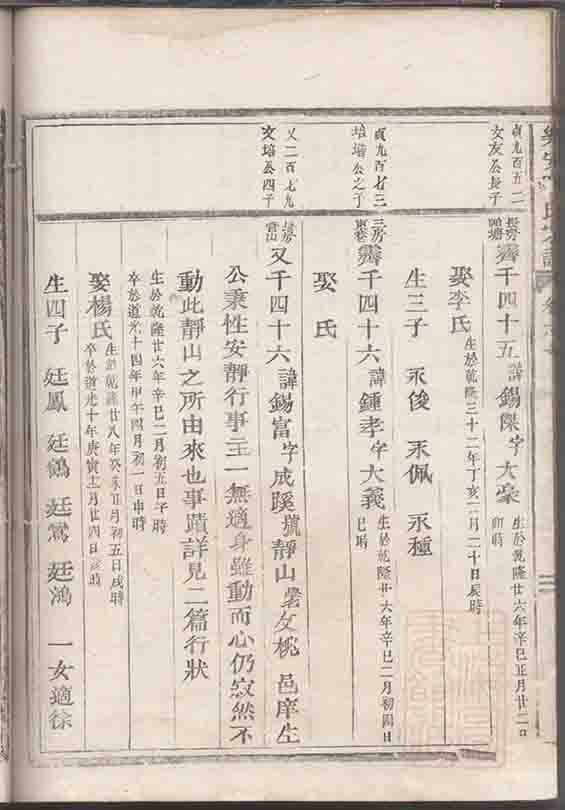 貞九百五二
文友公長子
長房
霽千四十五諱錫傑字大豪
生於乾隆廿六年辛巳正月廿二日
卯時
娶李氏
生於乾隆三十二年丁亥二月二十日辰時
生三子 永俊 永佩 永種
貞九百七三
培墖公之子
三房
霽千四十六諱鍾孝字大義
生於乾隆廿六年辛巳二月初四日
巳時
娶 氏
又二百七九
文培公四子
又千四十六諱錫富字成蹊號靜山 邑庠生
公秉性安靜行事主一無適身雖動而心仍寂然不
動此靜山之所由來也事蹟詳見二篇行狀
生於乾隆廿六年辛巳二月初五日子時
卒於道光十四年甲午四月初一日申時
娶楊氏
生於乾隆廿八年癸未正月初五日戌時
卒於道光十年庚寅十二月廿四日亥時
生四子 廷鳳 廷鶴 廷鸞 廷鴻 一女適徐